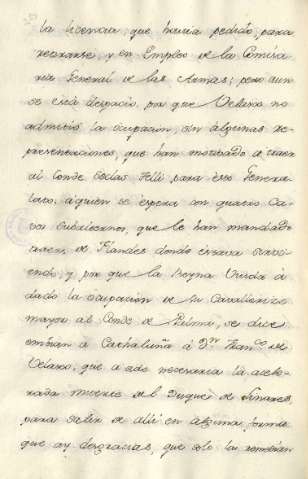 la licencia, que havia pedido, para
retirarse, y en Empleo de la Comisa
ria General de las Armas; pero aun
se está despacio, por que Velasco no
admitio la ocupacion, sin algunas re
presentaciones, que han motivado a traer
al Conde para ese Genera
lato. a quien se espera con quatro Ca
vos subalternos, que le han mandado
traer, de Flandes donde estava sirvi
endo; y por que la Reyna Viuda á
dado la ocupacion de su Cavallerizo
mayor al Conde de se dice
embian à Cathaluña à Dn. Franco. de
Velasco, que a sido necesaria la acele
rada muerte del Duque de Linares,
para salir de alli en alguna forma
que ay desgracias, que solo la